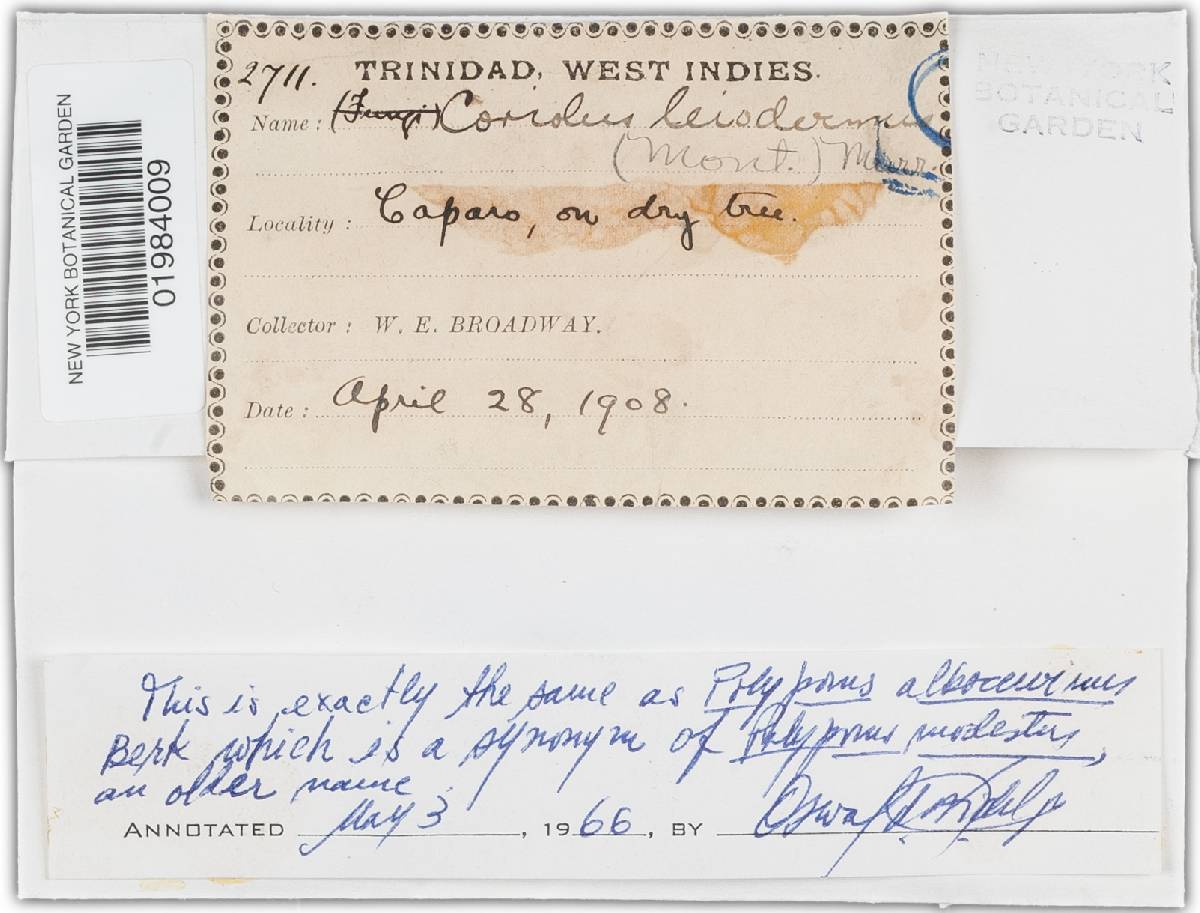 NEW YORK BOTANICAL GARDEN
01984009
NEW YORK
BOTANICAL
GARDEN
2711. TRINIDAD, WEST INDIES.
Name: (Fungi) Coriolus leiodermus
(Mont.) Murr.
Locality: Caparo, on dry tree.
Collector: W. E. BROADWAY.
Date: April 28, 1908.
This is exactly the same as Polyporus
Berk which is a synonym of Polyporus modestus,
an older name.
ANNOTATED May 3, 1966, BY Oswaldo Fidalgo